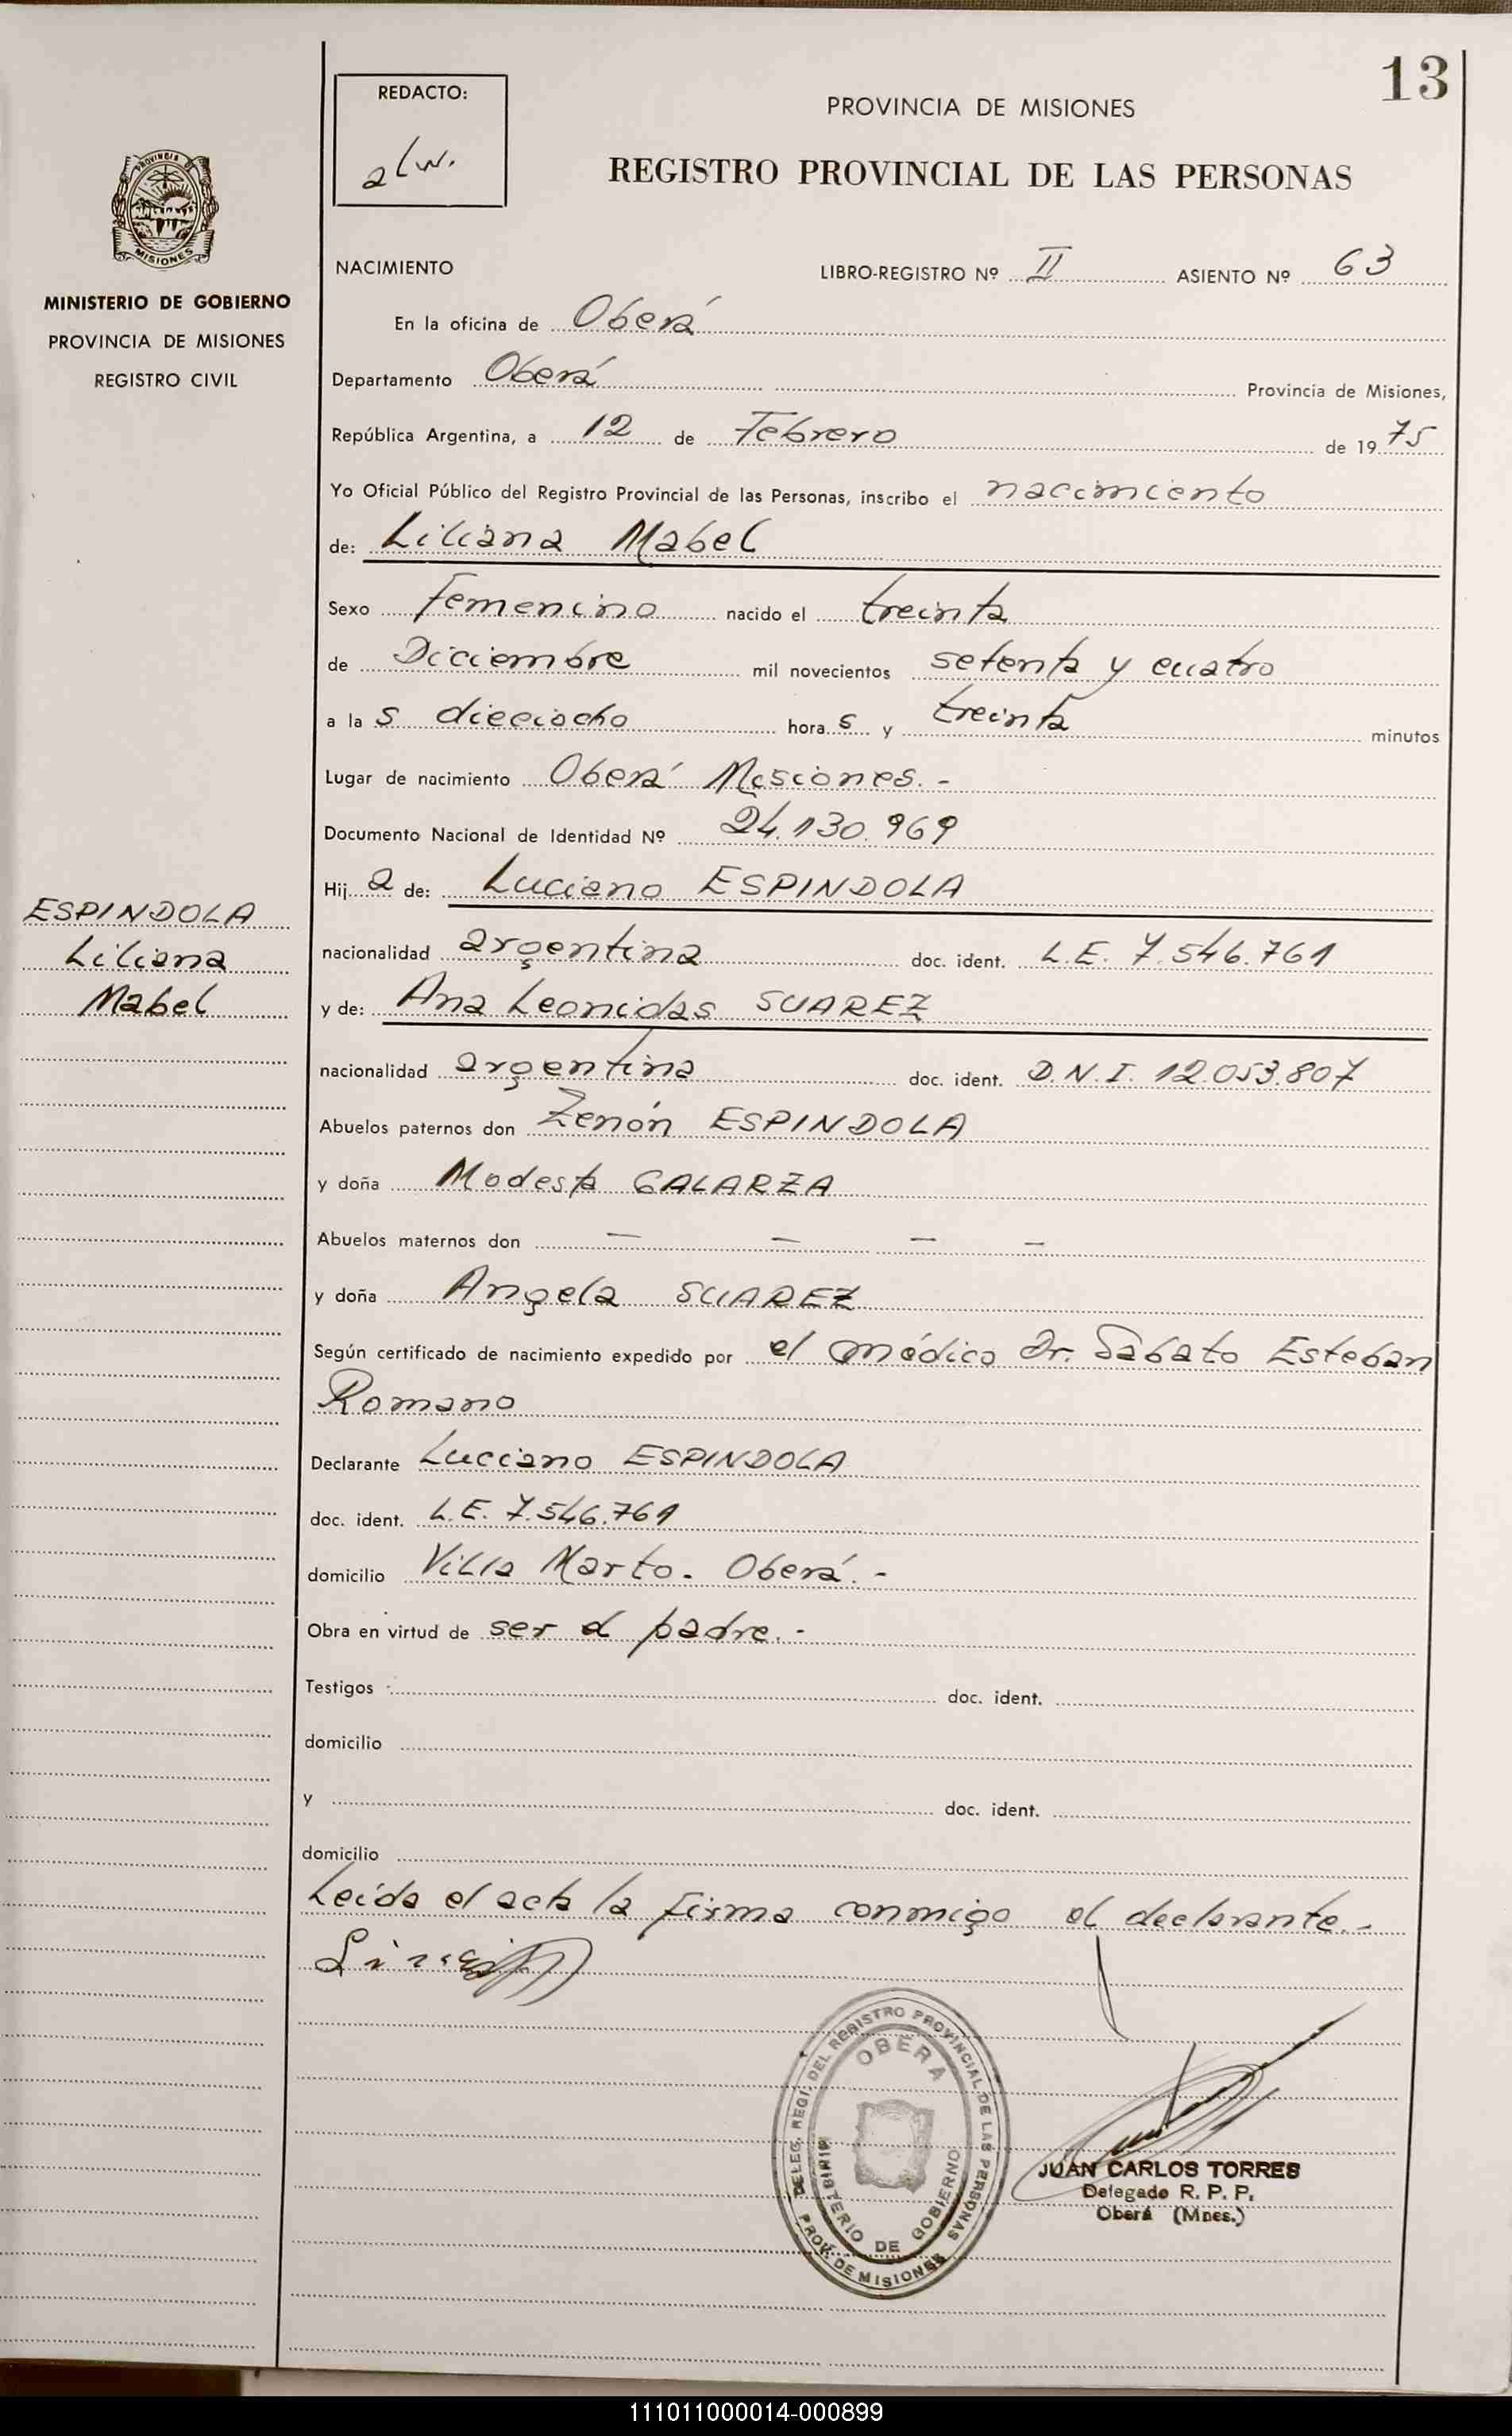 13
REDACTO:
PROVINCIA DE MISIONES
REGISTRO PROVINCIAL DE LAS PERSONAS
PROVINCIA DE
MISIONES
MINISTERIO DE GOBIERNO
PROVINCIA DE MISIONES
REGISTRO CIVIL
NACIMIENTO LIBRO-REGISTRO Nº II ASIENTO Nº 63
En la oficina de Oberá
Departamento Oberá Provincia de Misiones,
República Argentina, a 12 de Febrero de 1975
Yo Oficial Público del Registro Provincial de las Personas, inscribo el nacimiento
de: Liliana Mabel
Sexo Femenino nacido el treinta
de Diciembre mil novecientos setenta y cuatro
a las dieciocho horas y treinta minutos
Lugar de nacimiento Oberá Misiones.-
Documento Nacional de Identidad Nº 24.130.969
Hija de: Luciano ESPINDOLA
ESPINDOLA
Liliana
Mabel
nacionalidad argentina doc. ident. L.E. 7.546.761
y de: Ana Leonidas SUAREZ
nacionalidad argentina doc. ident. D.N.I. 12.053.807
Abuelos paternos don Zenón ESPINDOLA
y doña Modesta GALARZA
Abuelos maternos don — — — —
y doña Angela SUAREZ
Según certificado de nacimiento expedido por el médico Dr. Sabato Esteban
Romano
Declarante Luciano ESPINDOLA
doc. ident. L.E. 7.546.761
domicilio Villa Marto. Oberá.-
Obra en virtud de ser el padre.-
Testigos doc. ident.
domicilio
y doc. ident.
domicilio
Leída el acta la firma conmigo el declarante.-
DELEG. REGI. DEL REGISTRO PROVINCIAL DE LAS PERSONAS
OBERA
MINISTERIO DE GOBIERNO
PROV. DE MISIONES
JUAN CARLOS TORRES
Delegado R. P. P.
Oberá (Mnes.)
111011000014-000899